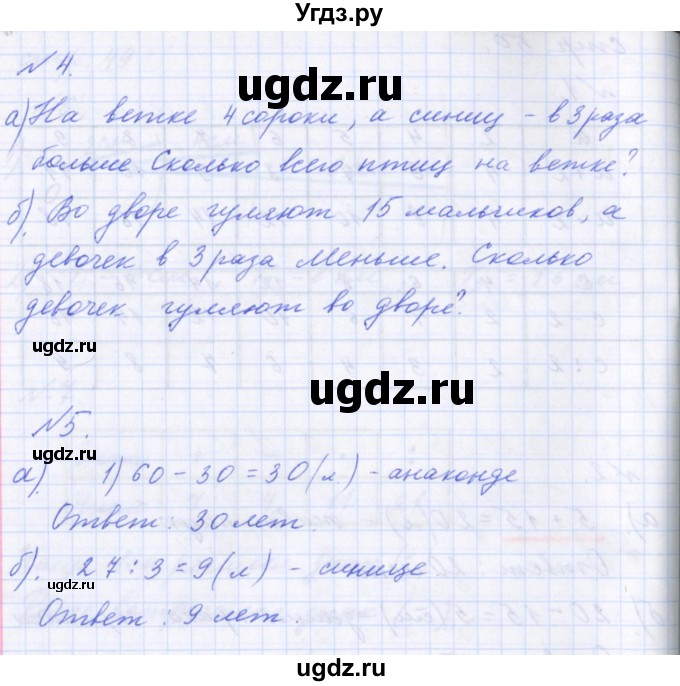 Угдз.ру
№ 4.
ugdz.ru
а) На ветке 4 сороки, а синиц - в 3 раза
больше. Сколько всего птиц на ветке?
б). Во дворе гуляют 15 мальчиков, а
девочек в 3 раза меньше. Сколько
девочек гуляют во дворе?
ugdz.ru
ugdz.ru
№5.
а). 1) 60 - 30 = 30 (л) - анаконде
Ответ: 30 лет.
ugdz.ru
б). 27 : 3 = 9 (л) - синице
ugdz.ru
Ответ: 9 лет.
ugdz.ru